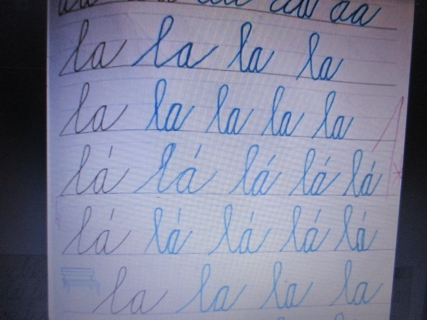 la la la la
la la la la la
lá lá lá lá lá
lá lá lá lá lá
la la la la